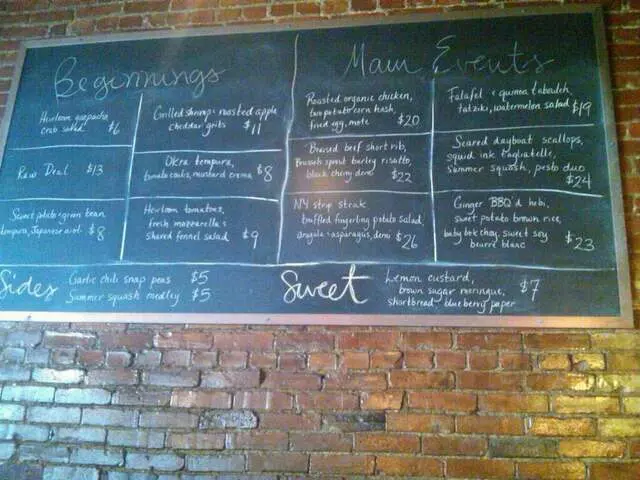 Beginnings
Heirloom gazpacho,
crab salad $6
Grilled shrimp & roasted apple
cheddar grits $11
Raw Deal $13
Okra tempura,
tomato coulis, mustard crema $8
Sweet potato & green bean
tempura, Japanese aioli $8
Heirloom tomatoes,
fresh mozzarella &
shaved fennel salad $9
Main Events
Roasted organic chicken,
two potato corn hash,
fried egg, mole $20
Falafel & quinoa tabouleh,
tatziki, watermelon salad $19
Braised beef short rib,
Brussels sprout barley risotto,
black cherry demi $22
Seared dayboat scallops,
squid ink tagliatelle,
summer squash, pesto duo
$24
NY strip steak
truffled fingerling potato salad
arugula & asparagus, demi $26
Ginger BBQ'd
sweet potato brown rice,
baby bok choy, sweet soy
beurre blanc $23
Sides
Garlic chili snap peas $5
Summer squash medley $5
Sweet
Lemon custard,
brown sugar meringue,
shortbread, blueberry paper
$7